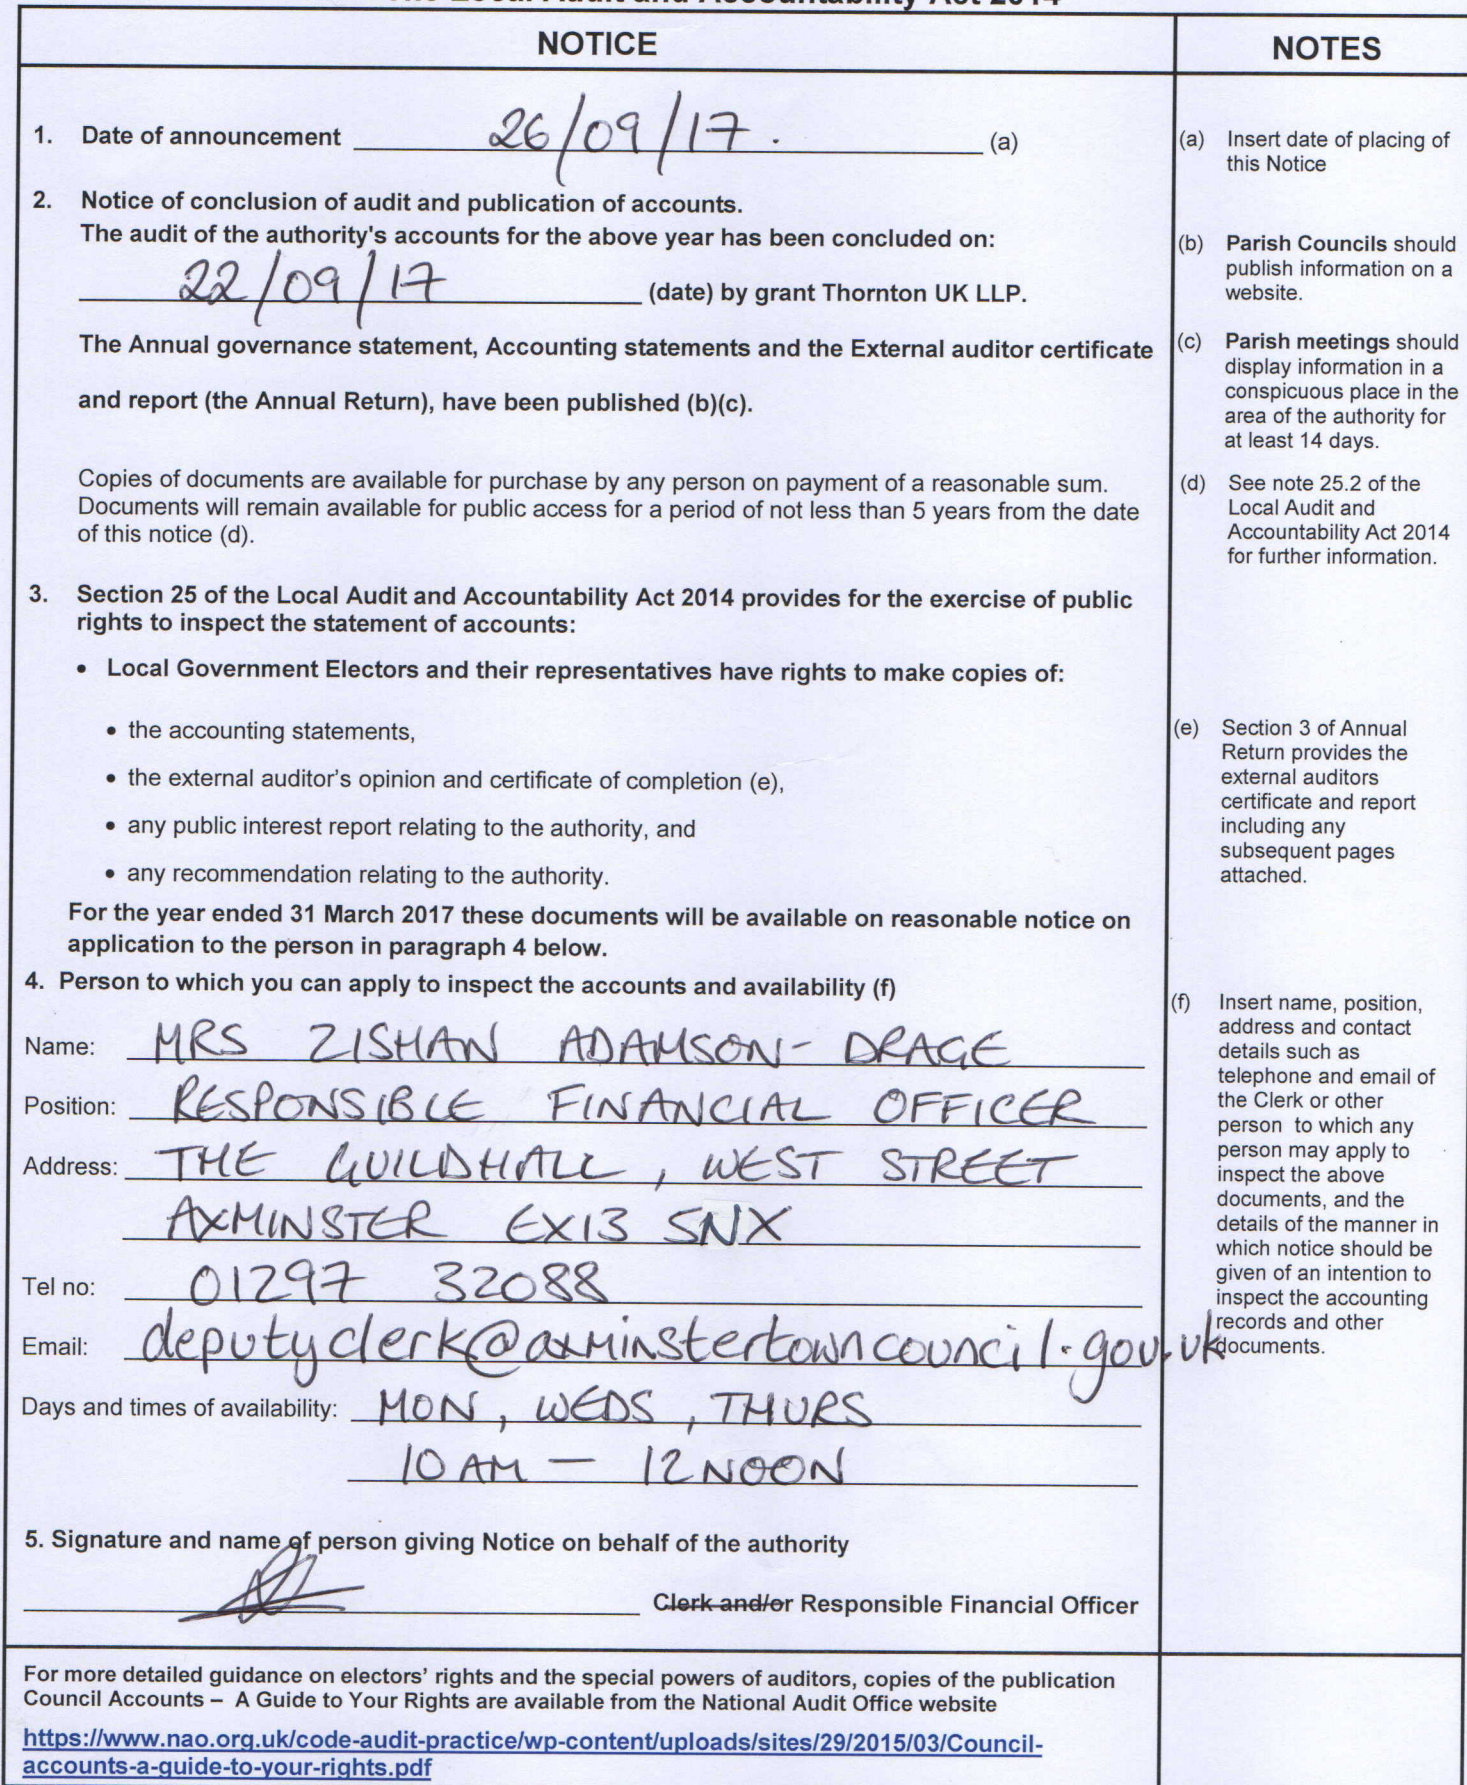 The Local Audit and Accountability Act 2014
NOTICE
1. Date of announcement 26/09/17. (a)
2. Notice of conclusion of audit and publication of accounts.
The audit of the authority's accounts for the above year has been concluded on:
22/09/17 (date) by grant Thornton UK LLP.
The Annual governance statement, Accounting statements and the External auditor certificate
and report (the Annual Return), have been published (b)(c).
Copies of documents are available for purchase by any person on payment of a reasonable sum.
Documents will remain available for public access for a period of not less than 5 years from the date
of this notice (d).
3. Section 25 of the Local Audit and Accountability Act 2014 provides for the exercise of public
rights to inspect the statement of accounts:
• Local Government Electors and their representatives have rights to make copies of:
• the accounting statements,
• the external auditor's opinion and certificate of completion (e),
• any public interest report relating to the authority, and
• any recommendation relating to the authority.
For the year ended 31 March 2017 these documents will be available on reasonable notice on
application to the person in paragraph 4 below.
4. Person to which you can apply to inspect the accounts and availability (f)
Name: MRS ZISHAN ADAMSON-DRAGE
Position: RESPONSIBLE FINANCIAL OFFICER
Address: THE GUILDHALL, WEST STREET
AXMINSTER EX13 5NX
Tel no: 01297 32088
Email: deputyclerk@axminstertowncouncil.gov.uk
Days and times of availability: MON, WEDS, THURS
10 AM — 12 NOON
5. Signature and name of person giving Notice on behalf of the authority
Clerk and/or Responsible Financial Officer
For more detailed guidance on electors' rights and the special powers of auditors, copies of the publication
Council Accounts – A Guide to Your Rights are available from the National Audit Office website
https://www.nao.org.uk/code-audit-practice/wp-content/uploads/sites/29/2015/03/Council-
accounts-a-guide-to-your-rights.pdf
NOTES
(a) Insert date of placing of
this Notice
(b) Parish Councils should
publish information on a
website.
(c) Parish meetings should
display information in a
conspicuous place in the
area of the authority for
at least 14 days.
(d) See note 25.2 of the
Local Audit and
Accountability Act 2014
for further information.
(e) Section 3 of Annual
Return provides the
external auditors
certificate and report
including any
subsequent pages
attached.
(f) Insert name, position,
address and contact
details such as
telephone and email of
the Clerk or other
person to which any
person may apply to
inspect the above
documents, and the
details of the manner in
which notice should be
given of an intention to
inspect the accounting
records and other
documents.